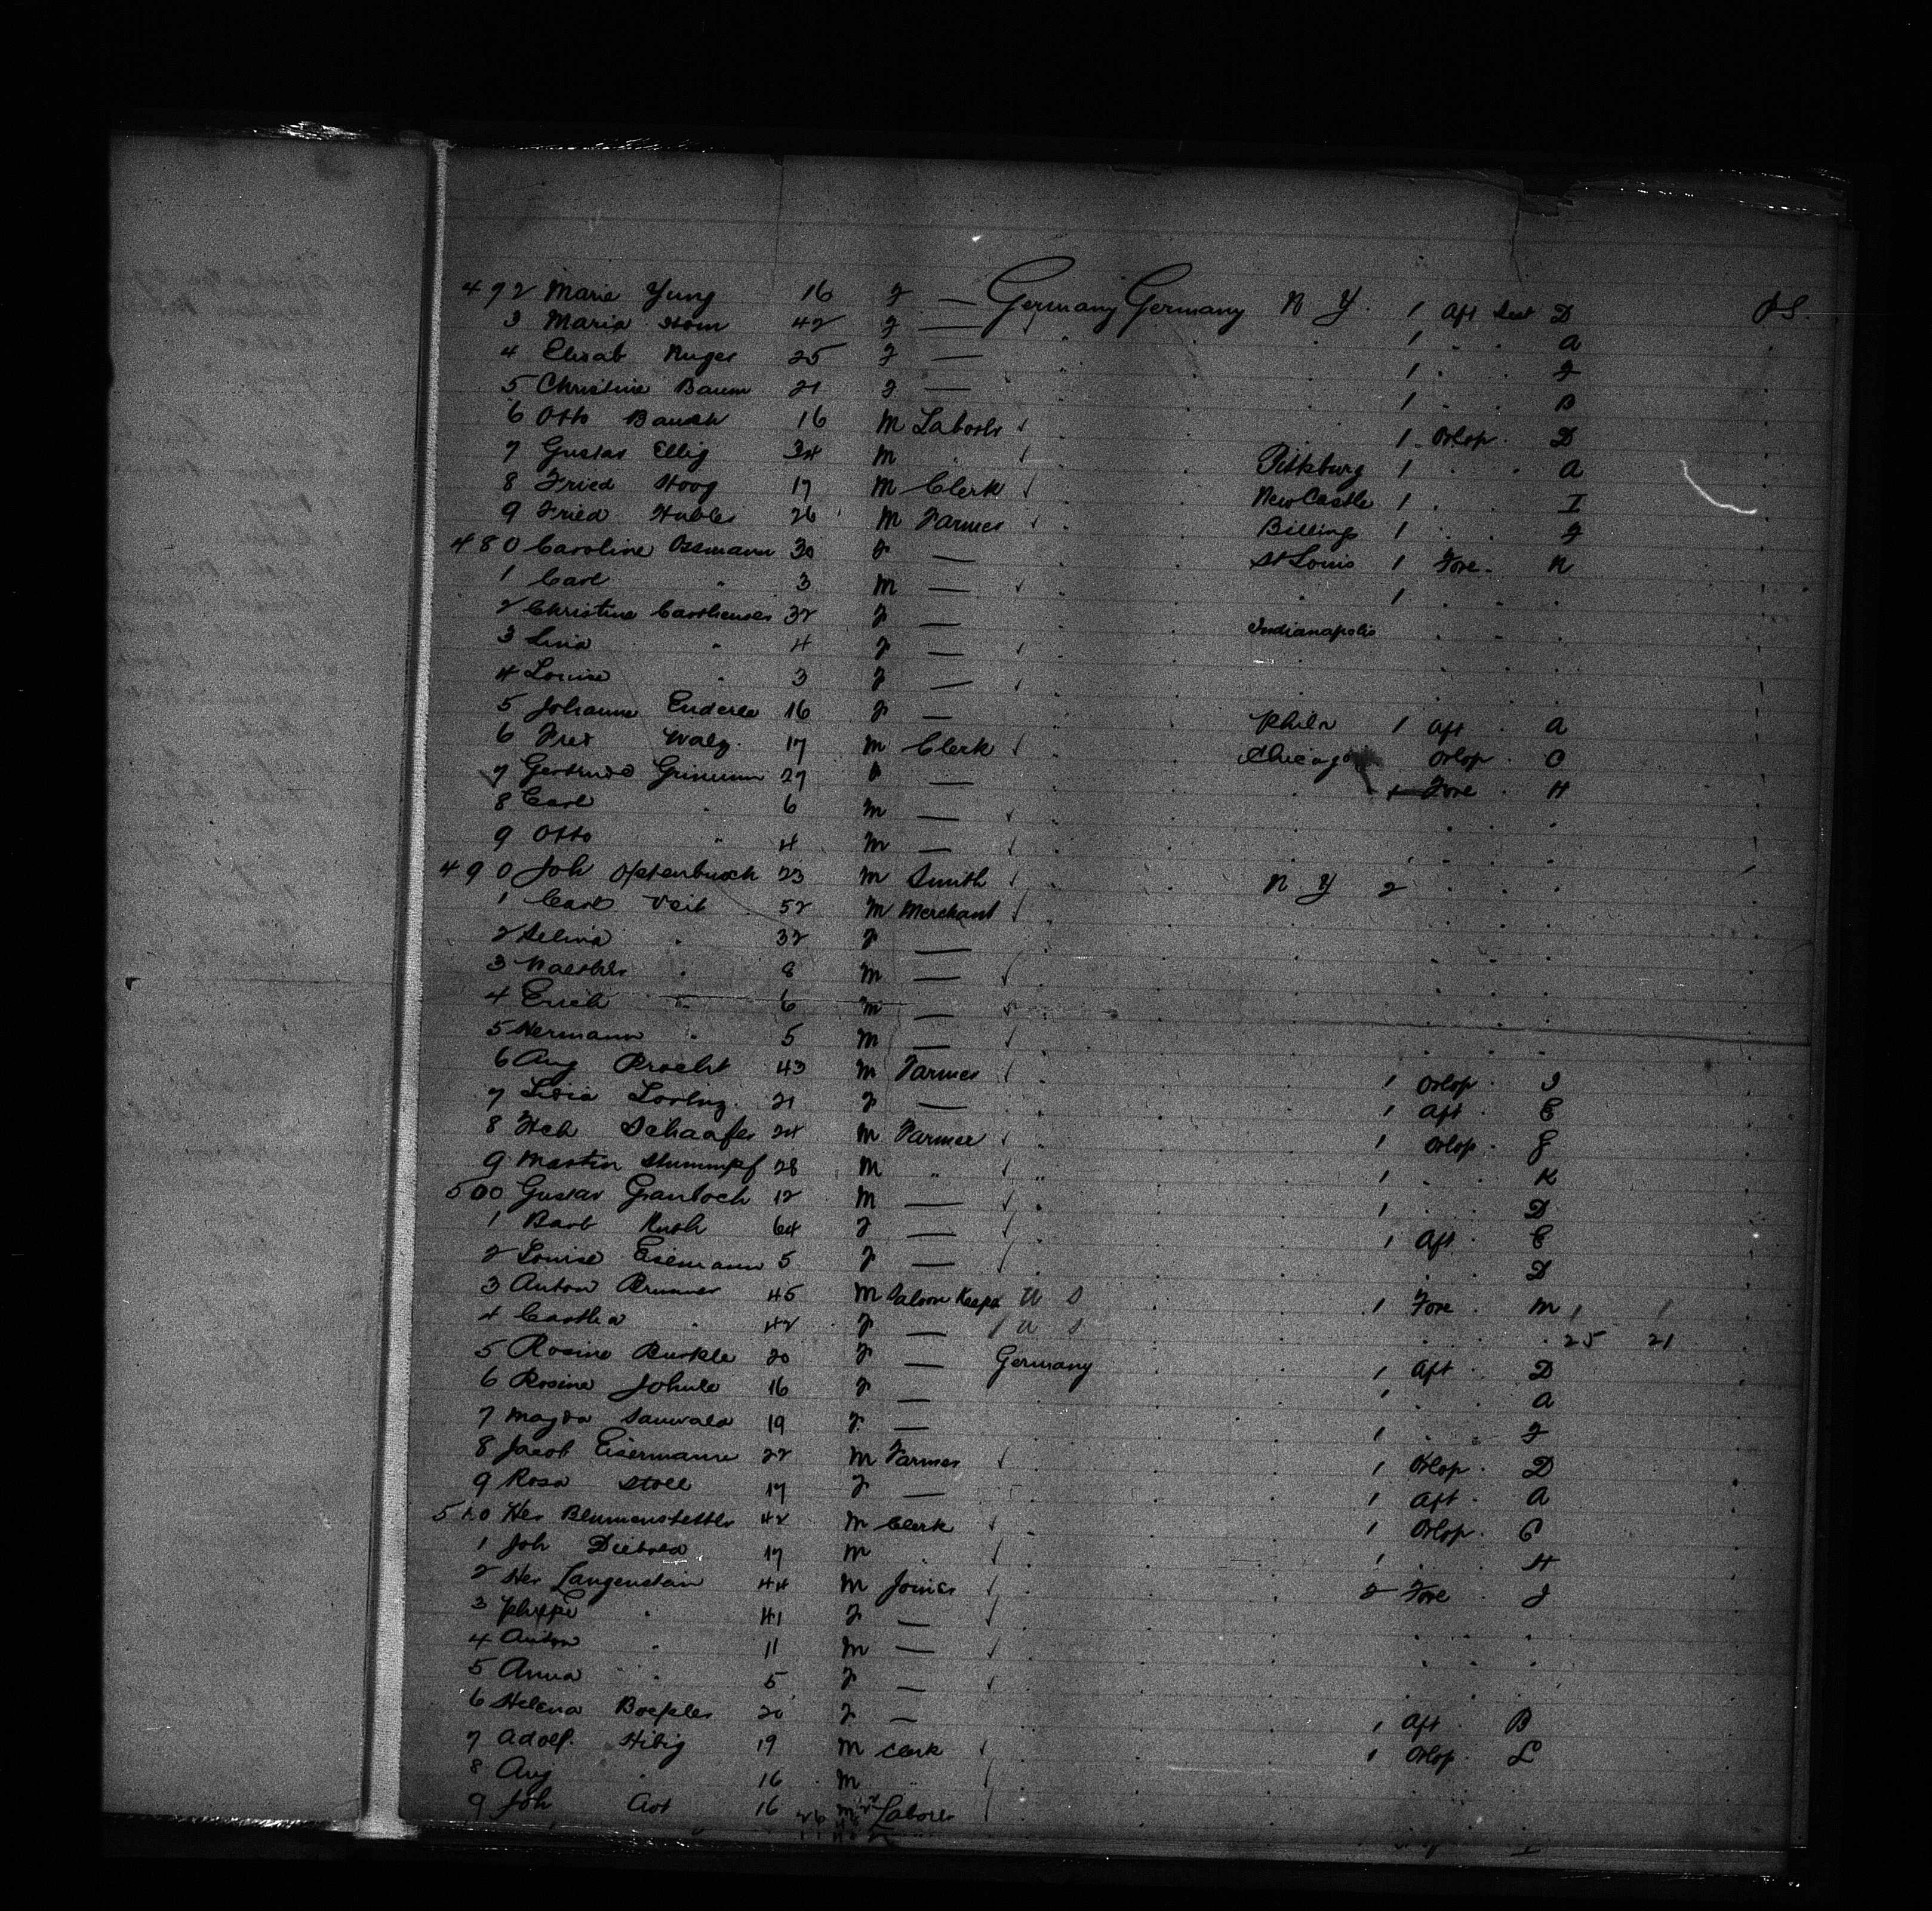 472 Marie Yung 16 F — Germany Germany N Y. 1 Aft D
3 Maria Horn 42 F — 1 " " A
4 Elisab Ruger 25 F — 1 " " F
5 Christine Baum 21 F — 1 " " B
6 Otto Baush 16 M Laborer 1 Orlop D
7 Gustav Ellig 34 M " Pittsburg 1 " A
8 Fried Hoog 17 M Clerk NewCastle 1 " I
9 Fried Hubler 26 M Farmer Billings 1 " F
480 Caroline Ossmann 30 F — St Louis 1 Fore N
1 Carl " 3 M — 1 " "
2 Christine Cartheuser 32 F — Indianapolis " "
3 Lina " 4 F —
4 Louise " 3 F —
5 Johanne Enderle 16 F — Phila 1 Aft A
6 Walz 17 M Clerk Chicago Orlop C
7 Gertrude 27 — Fore H
8 Carl " 6 M —
9 Otto " 4 M —
490 Joh 23 M Smith N Y 2 " "
1 Carl Veit 52 M Merchant
2 Selina " 32 F —
3 " 8 M —
4 Erich " 6 M —
5 Hermann " 5 M —
6 Aug Procht 43 M Farmer 1 Orlop
7 21 F — 1 Aft E
8 Hch Schaafer 24 M Farmer 1 Orlop G
9 Martin Stummpf 28 M " 1 " K
500 Gustav 12 M — 1 " D
1 Barb Kush 64 F — 1 Aft E
2 Louise Eisemann 5 F — D
3 Anton Brunner 45 M Saloon Keeper U S 1 Fore M 1 1
4 " 42 F — U S " " 25 21
5 Rosine Burkle 20 F — Germany 1 Aft D
6 Rosine 16 F — 1 " A
7 Magda Sauwald 19 F — 1 " F
8 Jacob Eisermann 22 M Farmer 1 Orlop D
9 Rosa Stoll 17 F — 1 Aft A
510 Her Blumenstettr 42 M Clerk 1 Orlop C
1 Joh Diebold 17 M " 1 " H
2 Her Langenstein 44 M Joiner 2 Fore J
3 " 41 F —
4 Anton " 11 M —
5 Anna " 5 F —
6 Helena Boepler 20 F — 1 Aft B
7 Adolf. Hibig 19 M Clerk 1 Orlop L
8 Aug " 16 M "
9 Joh 16 M Laborer